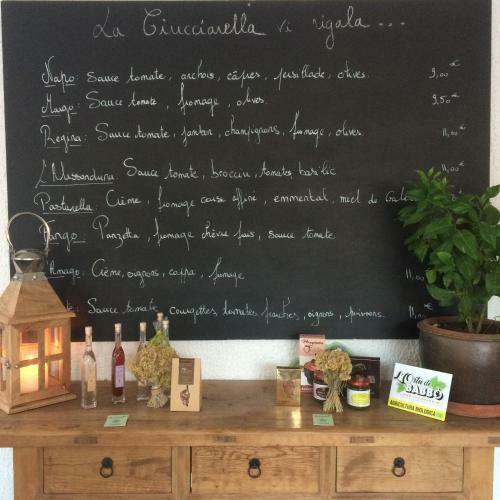 La Ciucciarella vi rigala ...
Napo: Sauce tomate, anchois, câpres, persillade, olives. 9,00€
Margo: Sauce tomate, fromage, olives. 9,50€
Regina: Sauce tomate, jambon, champignons, fromage, olives. 11,00€
L'Alissandura: Sauce tomate, brocciu, tomates, basilic 11,00€
Pasturella: Crème, fromage corse affiné, emmental, miel de
Fango: Panzetta, fromage chèvre frais, sauce tomate.
Amago: Crème, oignons, coppa, fromage 11,00
Sauce tomate, courgettes, tomates fraîches, oignons, poivrons. 11,
L'Ortu di
BABBO
AGRICULTURA BIOLOGICA